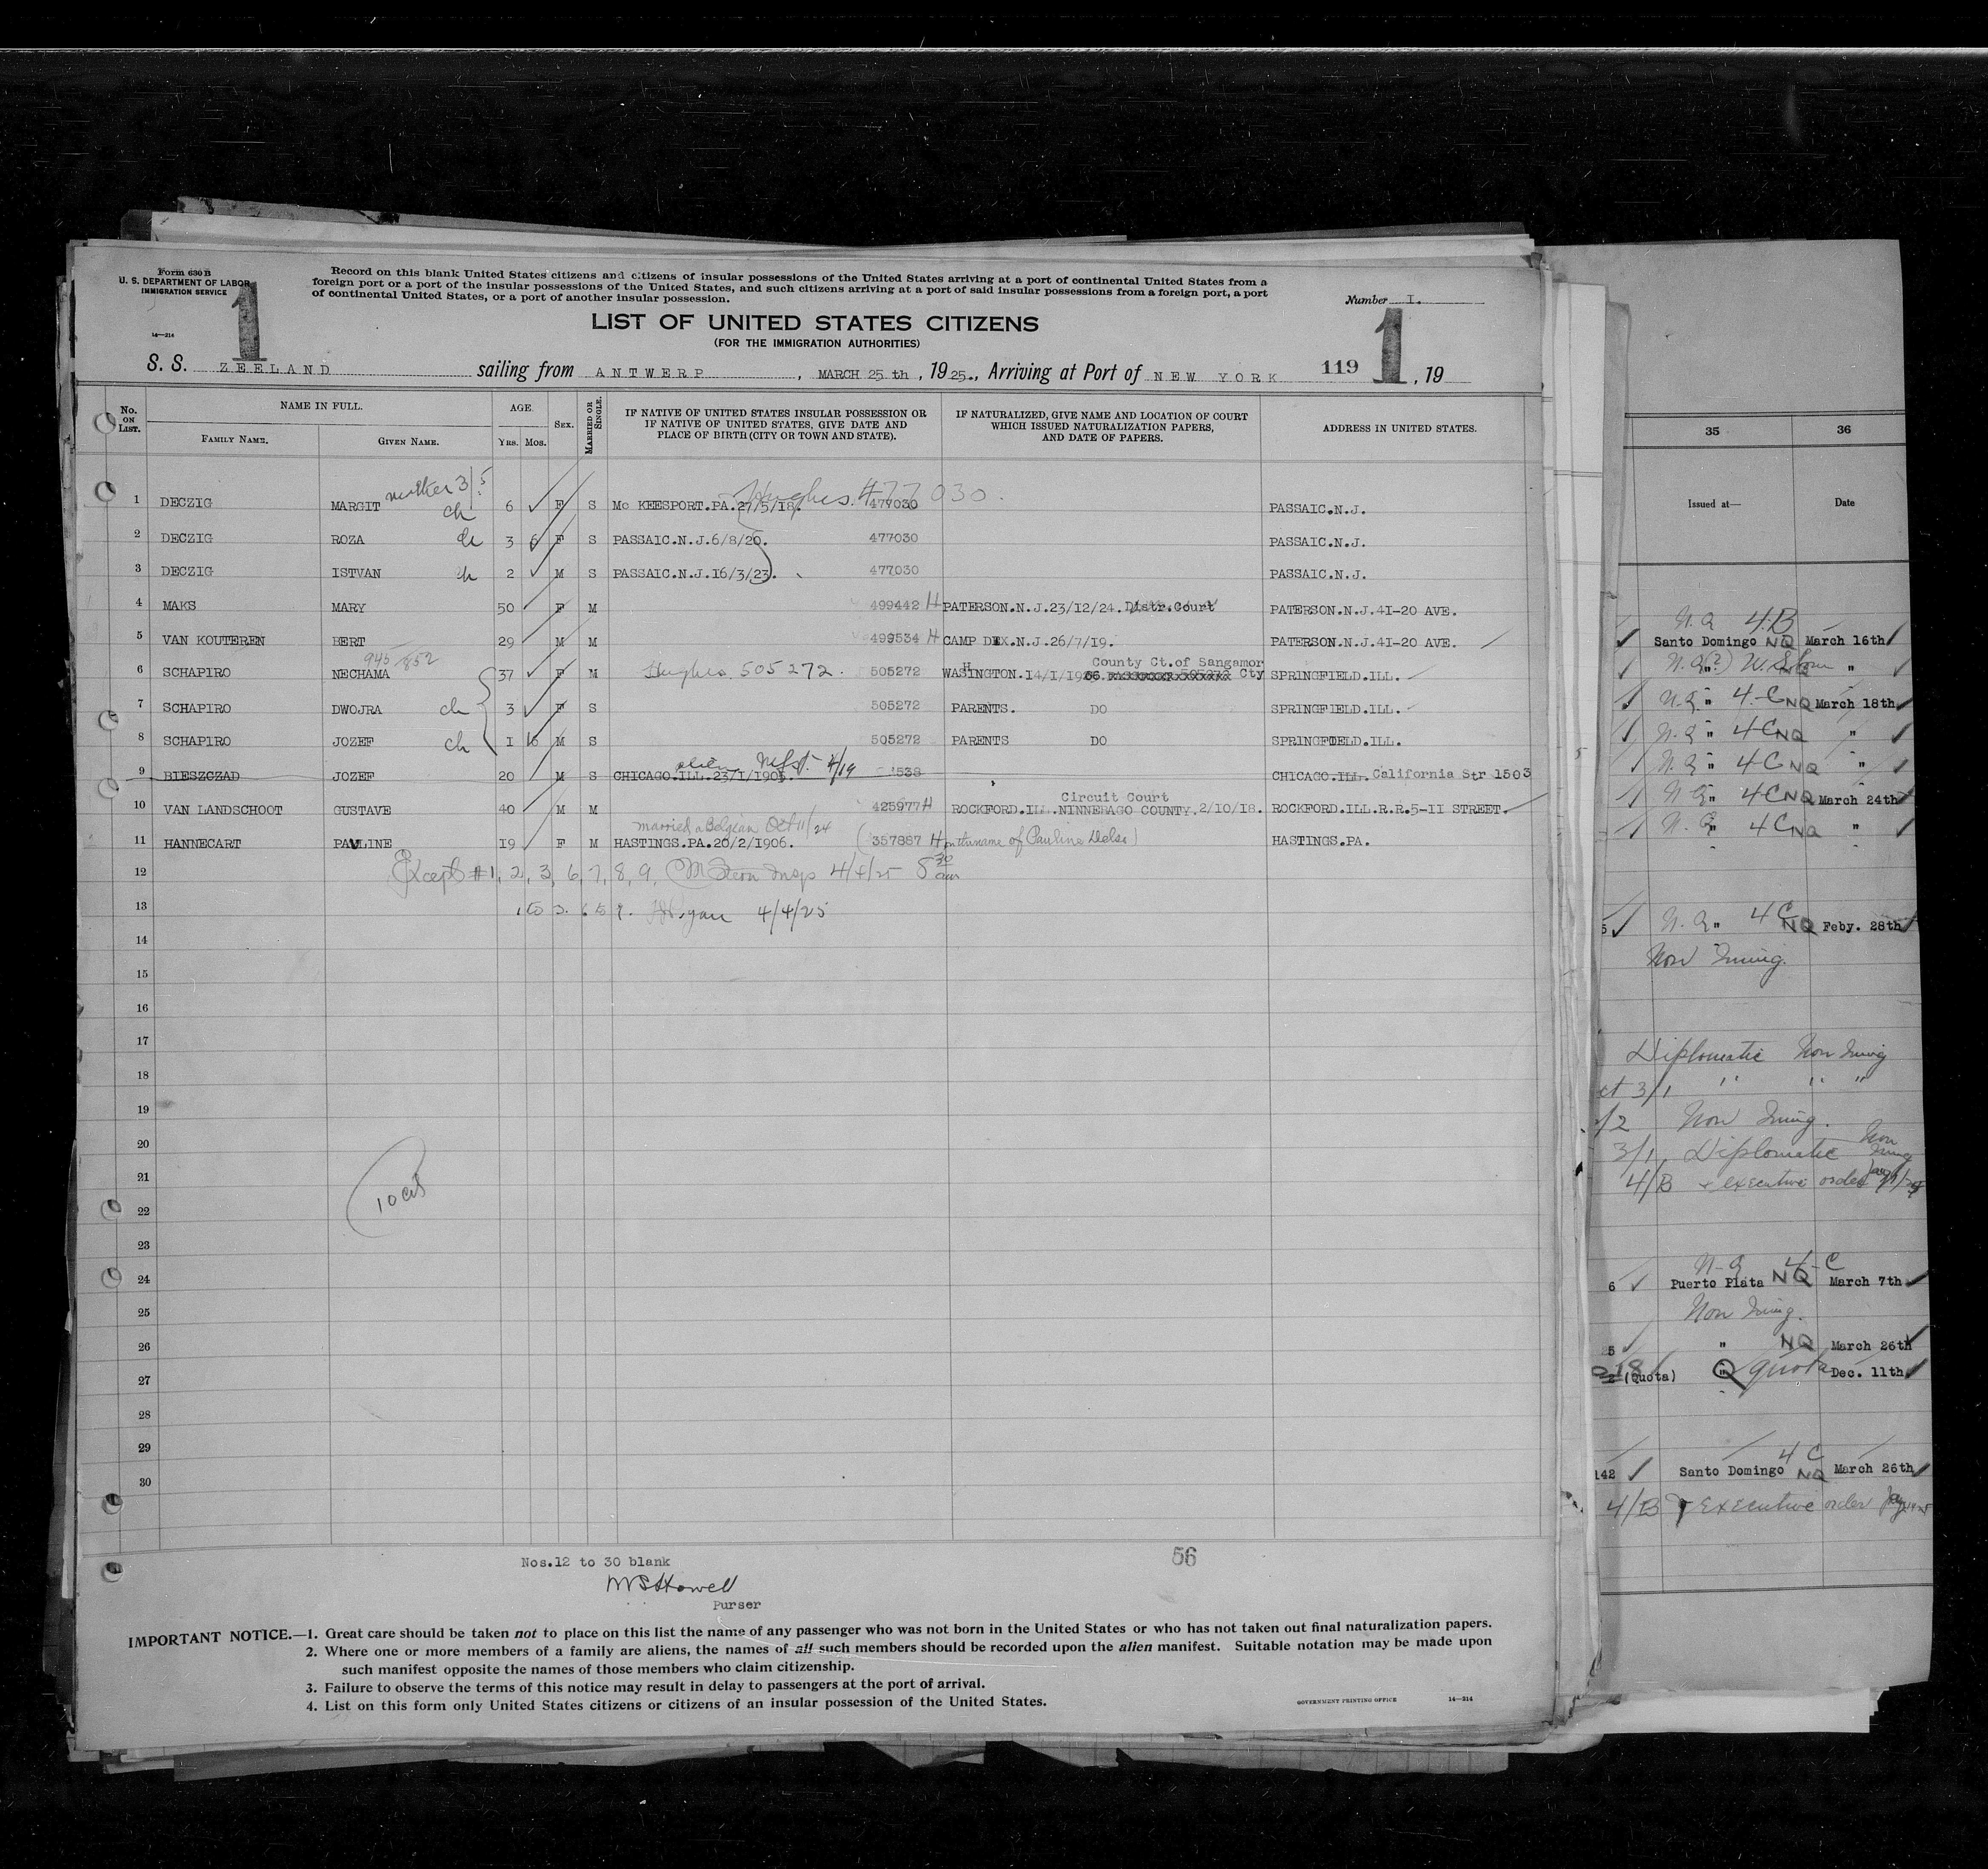 Form 630 B
U. S. DEPARTMENT OF LABOR
IMMIGRATION SERVICE
14—214
1
Record on this blank United States citizens and citizens of insular possessions of the United States arriving at a port of continental United States from a
foreign port or a port of the insular possessions of the United States, and such citizens arriving at a port of said insular possessions from a foreign port, a port
of continental United States, or a port of another insular possession.
Number I.
LIST OF UNITED STATES CITIZENS
(FOR THE IMMIGRATION AUTHORITIES)
S. S. ZEELAND sailing from ANTWERP, MARCH 25 th, 1925., Arriving at Port of NEW YORK 119 1, 19
No. ON LIST. NAME IN FULL. AGE. SEX. MARRIED OR SINGLE. IF NATIVE OF UNITED STATES INSULAR POSSESSION OR IF NATIVE OF UNITED STATES, GIVE DATE AND PLACE OF BIRTH (CITY OR TOWN AND STATE). IF NATURALIZED, GIVE NAME AND LOCATION OF COURT WHICH ISSUED NATURALIZATION PAPERS, AND DATE OF PAPERS. ADDRESS IN UNITED STATES.
FAMILY NAME. GIVEN NAME. YRS. MOS.
mother 3/5 Hughes. 477030.
1 DECZIG MARGIT ch 6 F S Mc KEESPORT.PA.27/5/18. 477030 PASSAIC.N.J.
2 DECZIG ROZA ch 3 6 F S PASSAIC.N.J.6/8/20. 477030 PASSAIC.N.J.
3 DECZIG ISTVAN ch 2 M S PASSAIC.N.J.I6/3/23. 477030 PASSAIC.N.J.
4 MAKS MARY 50 F M 499442 H PATERSON.N.J.23/12/24. Distr.Court PATERSON.N.J.4I-20 AVE.
5 VAN KOUTEREN BERT 29 M M 499534 H CAMP DIX.N.J.26/7/19. PATERSON.N.J.4I-20 AVE.
945/852 County Ct.of Sangamor
6 SCHAPIRO NECHAMA 37 F M Hughes 505272. 505272 WASHINGTON.I4/I/19 Cty SPRINGFIELD.ILL.
7 SCHAPIRO DWOJRA ch 3 F S 505272 PARENTS. DO SPRINGFIELD.ILL.
8 SCHAPIRO JOZEF ch I 6 M S 505272 PARENTS DO SPRINGFIELD.ILL.
alien Mfst. 4/19
9 BIESZCZAD JOZEF 20 M S CHICAGO.ILL.23/I/1905. 538 CHICAGO.ILL. California Str 1503
Circuit Court
10 VAN LANDSCHOOT GUSTAVE 40 M M 425977 H ROCKFORD.ILL.NINNEBAGO COUNTY.2/10/18. ROCKFORD.ILL.R.R.5-II STREET.
married a Belgian Oct 11/24
11 HANNECART PAVLINE I9 F M HASTINGS.PA.20/2/1906. (357887 H in the name of Pauline Delse) HASTINGS.PA.
12 Except #1, 2, 3, 6, 7, 8, 9, Insp 4/4/25 8 30 am
13 4/4/25
14
15
16
17
18
19
20
21
10 cit
22
23
24
25
26
27
28
29
30
Nos.12 to 30 blank
Purser
56
IMPORTANT NOTICE.—1. Great care should be taken not to place on this list the name of any passenger who was not born in the United States or who has not taken out final naturalization papers.
2. Where one or more members of a family are aliens, the names of all such members should be recorded upon the alien manifest. Suitable notation may be made upon
such manifest opposite the names of those members who claim citizenship.
3. Failure to observe the terms of this notice may result in delay to passengers at the port of arrival.
4. List on this form only United States citizens or citizens of an insular possession of the United States.
GOVERNMENT PRINTING OFFICE 14—214
35 36
Issued at— Date
N.Q 4.B
Santo Domingo NQ March 16th
N.Q " NQ "
N.Q " 4-C NQ March 18th
N.Q " 4C NQ "
N.Q " 4-C NQ "
N.Q " 4C NQ March 24th
N.Q " 4C NQ "
5 N.Q " 4C NQ Feby. 28th
Non Immig.
Diplomatic Non Immig
ct 3/1 " " "
/2 Non Immig.
3/1 Diplomatic Non Immig
4/B + executive order
N-Q 4-C
6 Puerto Plata NQ March 7th
Non Immig.
5 " NQ March 26th
(Quota) Q quota Dec. 11th
4 C
142 Santo Domingo NQ March 26th
4/B + Executive order